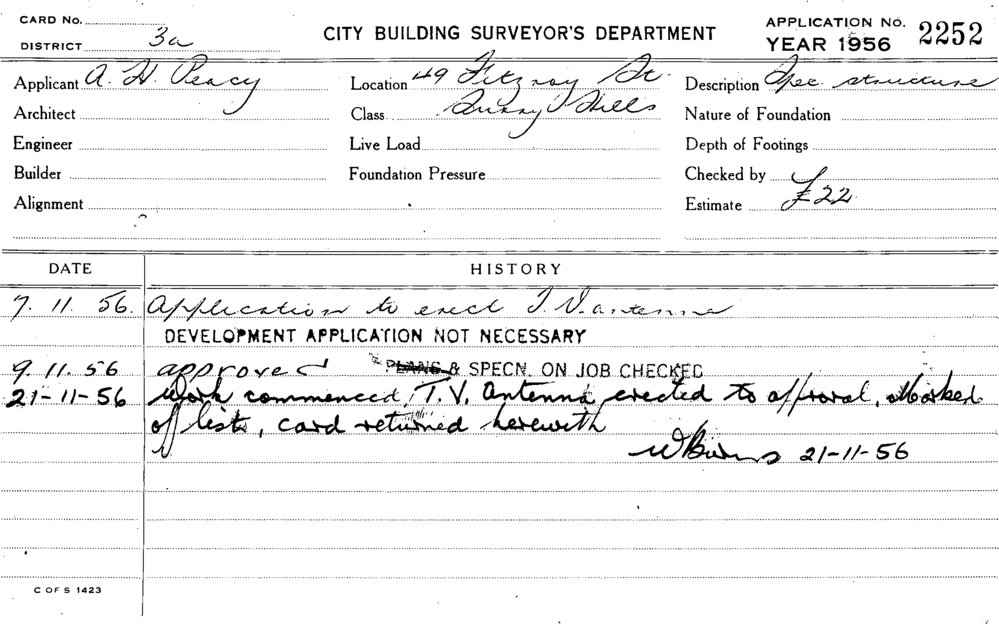 CARD No.
DISTRICT 3a
CITY BUILDING SURVEYOR'S DEPARTMENT
APPLICATION No. 2252
YEAR 1956
Applicant A. H. Peacy
Location 49 Fitzroy St.
Description Spec. structure
Architect
Class Surry Hills
Nature of Foundation
Engineer
Live Load
Depth of Footings
Builder
Foundation Pressure
Checked by
Alignment
Estimate £22
DATE HISTORY
7. 11. 56. Application to erect T.V. antenna
DEVELOPMENT APPLICATION NOT NECESSARY
9. 11. 56 approved PLANS & SPECN. ON JOB CHECKED
21-11-56 Work commenced, T.V. Antenna erected to approval. Marked
of list, card returned herewith
W Burns 21-11-56
C OF S 1423